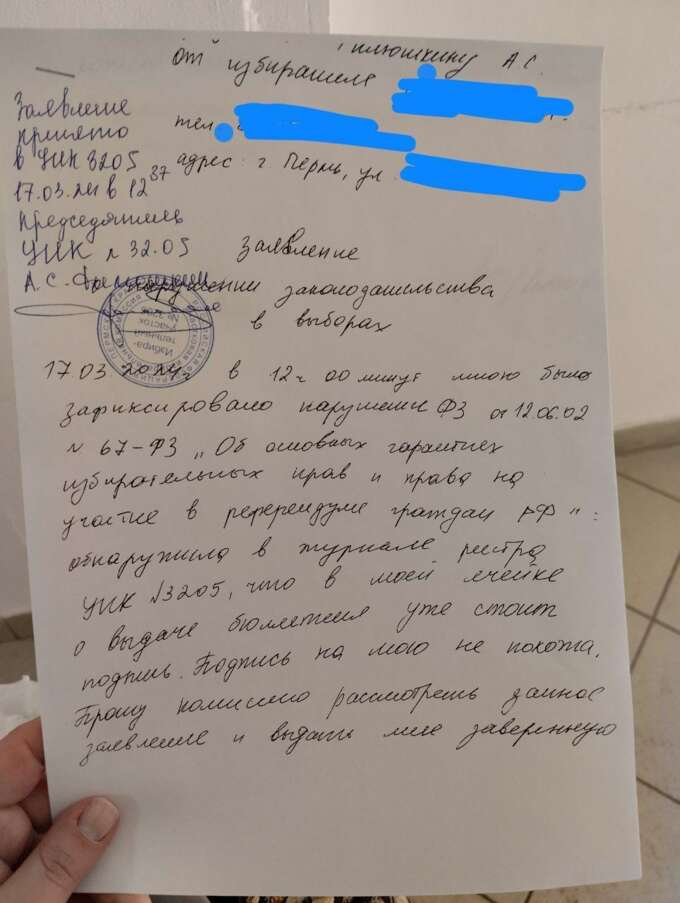 А.С.
от избирателя
тел.
адрес: г Пермь, ул.
Заявление
принято
в УИК 3205
17.03.24 в 12 37
Председатель
УИК № 32.05
А.С.
Заявление
о нарушении законодательства
в выборах
Избира-
тельный
участок
17.03.2024г. в 12ч 00 минут мною было
зафиксировано нарушение ФЗ от 12.06.02
№ 67-ФЗ „Об основных гарантиях
избирательных прав и права на
участие в референдуме граждан РФ":
обнаружила в журнале реестра
УИК №3205, что в моей ячейке
о выдаче бюллетня уже стоит
подпись. Подпись на мою не похожа.
Прошу комиссию рассмотреть данное
заявление и выдать мне заверенную